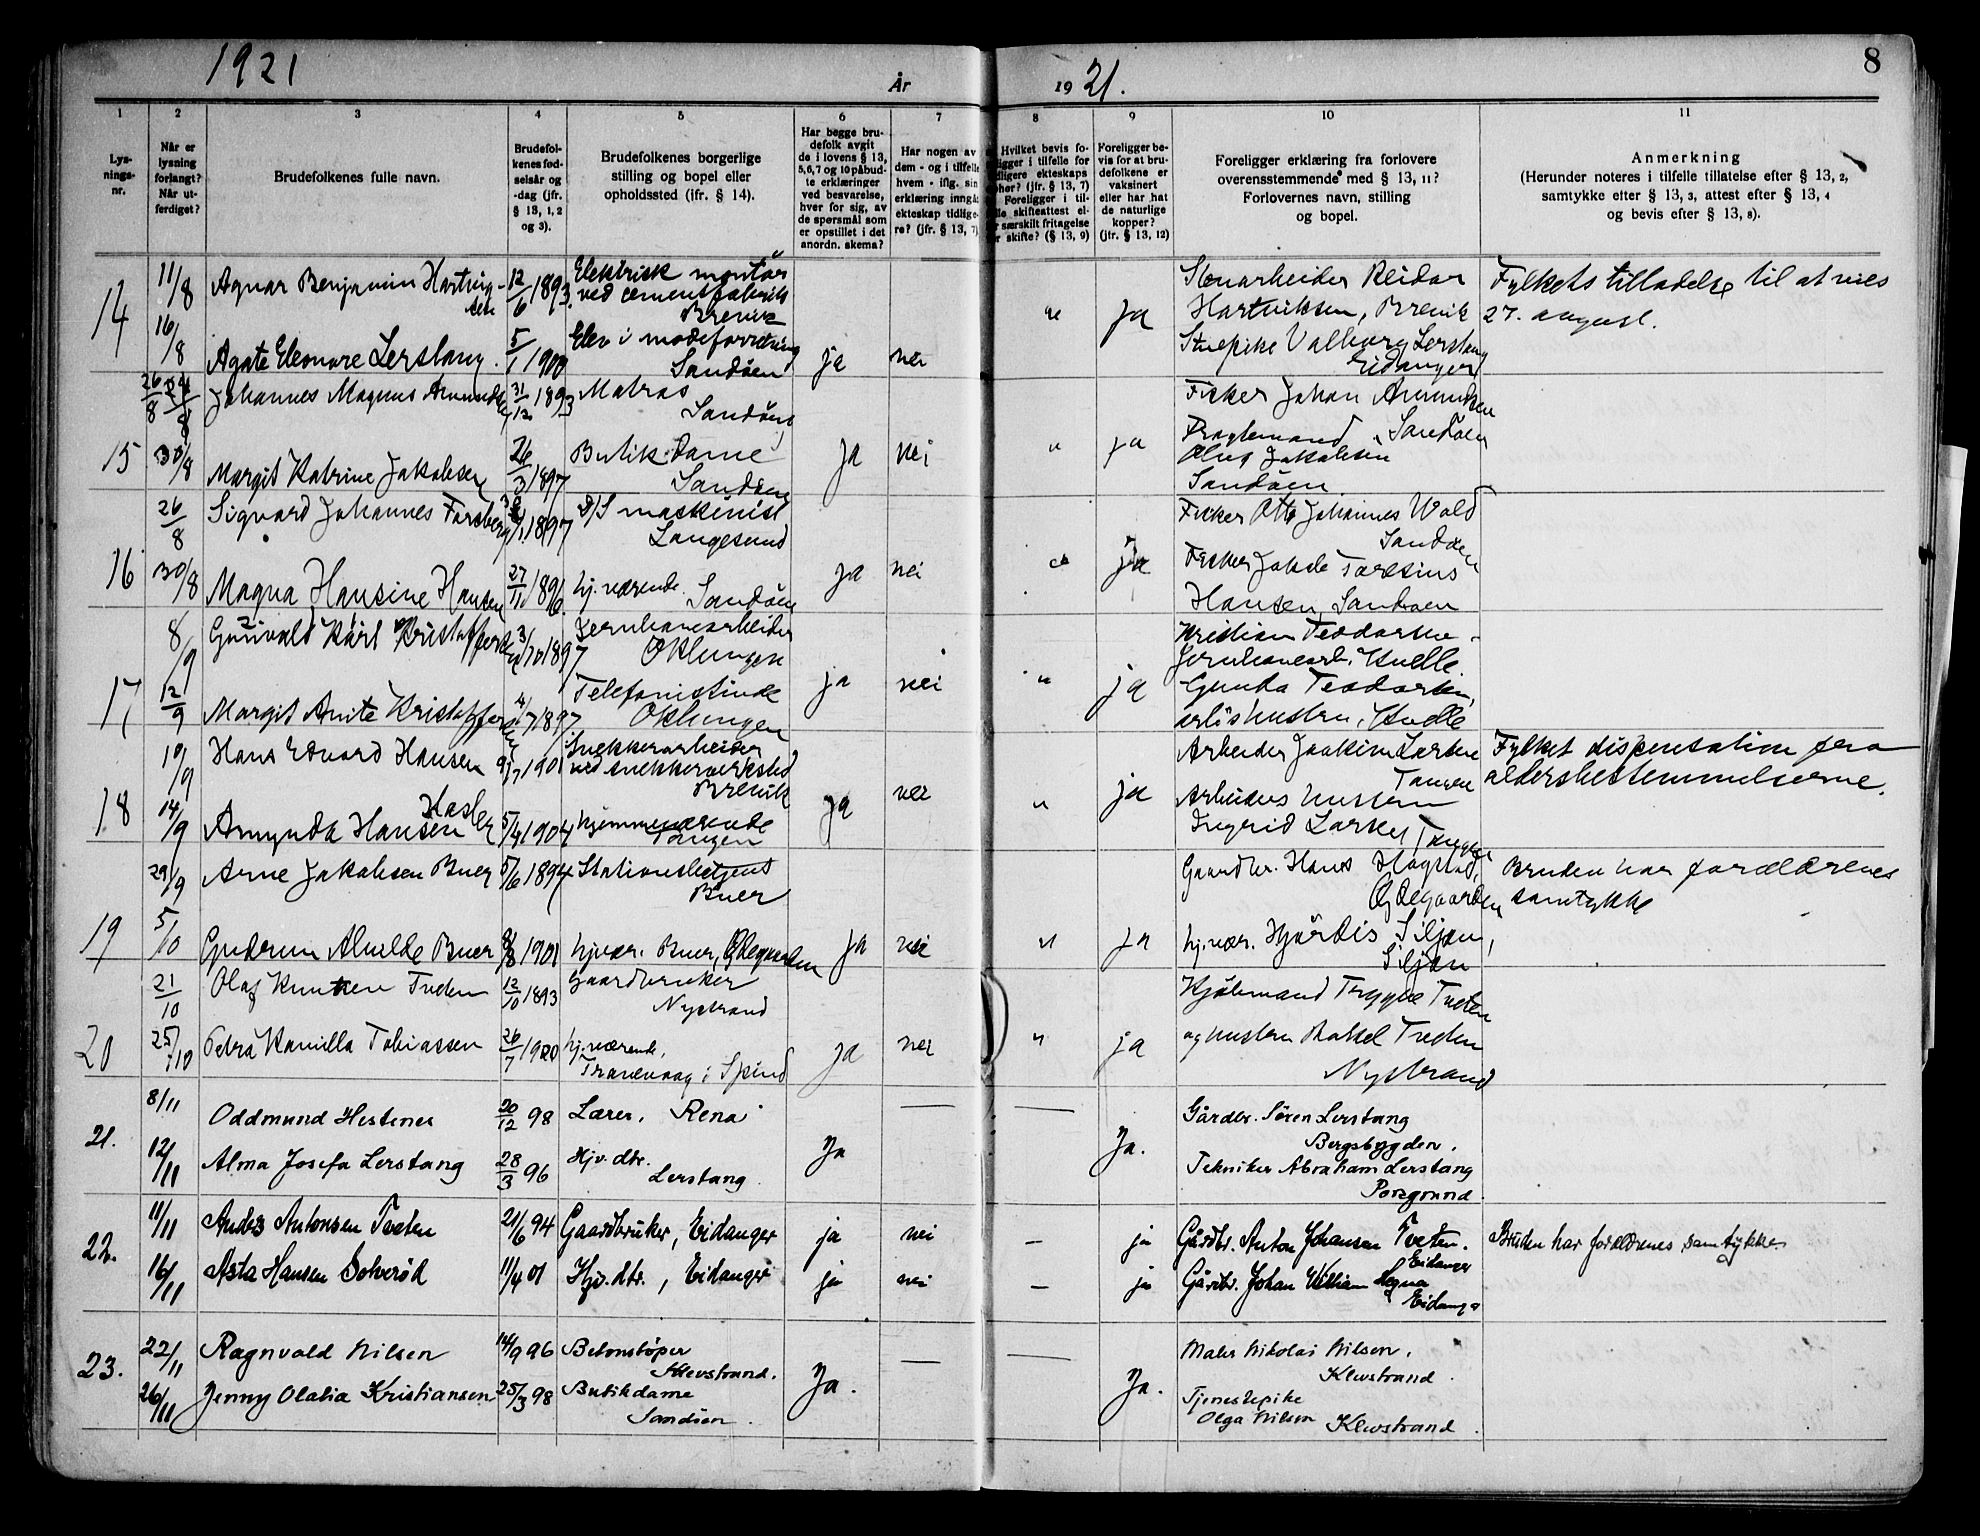 1921
År
1921.
8
1
2
3
4
5
6
7
8
9
10
11
Lys-
nings-
nr.
Når er
lysning
forlangt?
Når ut-
ferdiget?
Brudefolkenes fulle navn.
Brudefol-
kenes fød-
selsår og
-dag (jfr.
§ 13, 1, 2
og 3).
Brudefolkenes borgerlige
stilling og bopel eller
opholdssted (ifr. § 14).
Har begge bru-
defolk avgit
de i lovens § 13,
5,6,7 og 10 påbud-
te erklæringer
ved besvarelse,
hver for sig, av
de spørsmål som
er opstillet i det
anordn. skema?
Har nogen av
dem - og i tilfelle
hvem - iflg. sin
erklæring inngått
ekteskap tidlige-
re? (jfr. § 13, 7)
Hvilket bevis fo-
ligger i tilfelle for
dligere ekteskaps
pher? (jfr. § 13, 7)
Foreligger i til-
lle skifteattest el-
r særskilt fritagelse
r skifte? (§ 13, 9)
Foreligger be-
vis for at bru-
defolkene er
vaksinert
eller har hat
de naturlige
kopper?
(jfr. § 13, 12)
Foreligger erklæring fra forlovere
overensstemmende med § 13, 11?
Forlovernes navn, stilling
og bopel.
Anmerkning
(Herunder noteres i tilfelle tillatelse efter § 13, 2,
samtykke efter § 13, 3, attest efter § 13, 4
og bevis efter § 13, 8).
14
11/8
Agnar Benjamin
12/6 1893.
Elektrisk montør
ved cementfabrik
Brevik
16/8
Agate Eleonore Lerstang.
5/1 1900
Elev i modeforretning
Sandøen
ja
nei
"
ja
Stenarbeider Reidar
Hartviksen, Brevik
Valborg Lerstang
Eidanger
Fylkets tilladelse til at vies
27. august.
15
26/8
Johannes Magnus Amundsen
31/12 1893
Matros
Sandøen
30/8
Margit Katrine Jakobsen
26/3 1897
Butik-Dame
Sandøen
ja
nei
"
ja
Fisker Johan Amundsen
Sandøen
Fragtemand
Olus Jakobsen
Sandøen
16
26/8
Sigvard Johannes Forsberg
1897
D/S maskinist
Langesund
30/8
Magna Hansine Hansen
27/11 1896.
hj. værende
Sandøen
ja
nei
"
ja
Fisker Otto Johannes Wold
Sandøen
Fisker
Hansen, Sandøen
17
8/9
Gunvald Karl Kristoffersen
3/10 1897
Jernbanearbeider
Oklungen
12/9
Margit Anite Kristoffersen
4/7 1897
Telefonistinde
Oklungen
ja
nei
"
ja
Kristian Teodorsen
Jernbanearb.
Gunda Teodorsen,
18
10/9
Hans Edvard Hansen
9/7 1901
Snekkerarbeider
ved snekkerverksted
Brevik
14/9
Amynda Hansen Hasler
5/4 1904
hjemmeværende
Tangen
ja
nei
"
ja
Arbeider Joakim Larsen
Tangen
Arbeiders hustru
Ingrid Larsen
Tangen
Fylket dispensation fra
aldersbestemmelserne.
19
29/9
Arne Jakobsen Buer
5/6 1894
Stationsbetjent
Buer
5/10
Gudrun Alvilde Buer
8/8 1901
hjvær. Buer, Ødegaarden
ja
nei
"
ja
Gaardbr. Hans Hogstad,
Ødegaarden
hj. vær. Hjørdis Siljan,
Siljan
Bruden har forældrenes
samtykke
20
21/10
Olaf Knutsen Tveten
12/10 1893
gaardbruker
Nystrand
25/10
Petra Kamilla Tobiassen
26/7 1900
hj. værende,
i Spind
ja
nei
"
ja
Kjøbmand Trygve Tveten
og hustru Rakel Tveten
Nystrand
21.
8/11
Oddmund Hestenes
20/12 98
Lærer, Rena
12/11
Alma Josefa Lerstang
28/3 96
Hjv. dtr.
Lerstang.
Ja
—
—
Ja.
Gårdbr. Søren Lerstang
Bergsbygden.
Tekniker Abraham Lerstang
Porsgrund.
22.
11/11
Anders Antonsen Tveten
21/6 94
Gaardbruker, Eidanger
ja
nei
—
ja
Gårdbr. Anton Johansen Tveten.
Eidanger
Bruden har forældrenes samtykke.
16/11
Asta Hansen Solverød
11/4 01
Hjv. dtr., Eidanger
ja
nei
—
ja
Gårdbr. Johan William Legna
Eidanger
23.
22/11
Ragnvald Nilsen
14/9 96
Betonstøper
Klevstrand.
26/11
Jenny Olalia Kristiansen
25/3 98
Butikdame
Sandøen.
Ja.
—
—
Ja.
Maler Nikolai Nilsen.
Klevstrand.
Tjenestepike
Olga Nilsen Klevstrand.